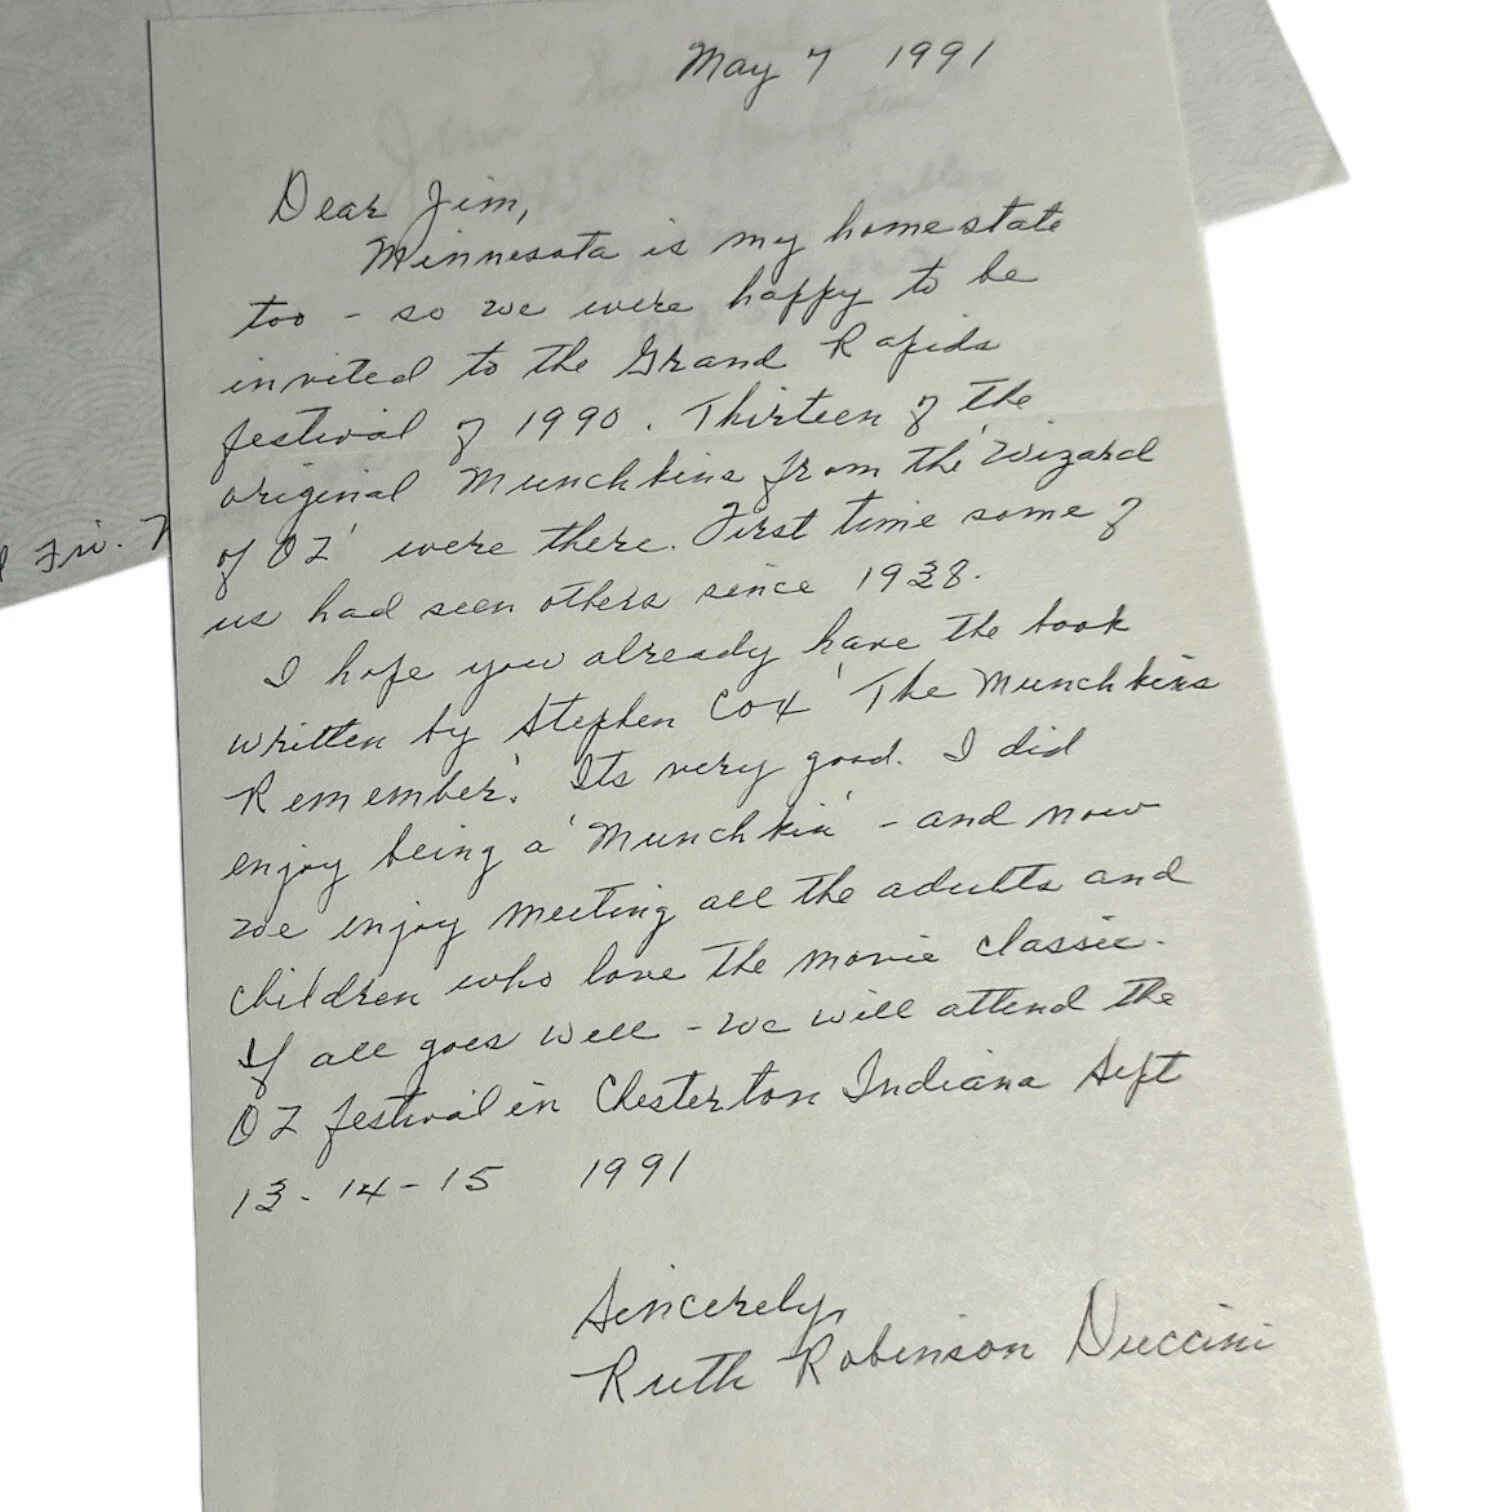 May 7 1991
Dear Jim,
Minnesota is my home state
too - so we were happy to be
invited to the Grand Rapids
festival of 1990. Thirteen of the
original Munchkins from the 'Wizard
of OZ' were there. First time some of
us had seen others since 1938.
I hope you already have the book
written by Stephen Cox 'The Munchkins
Remember.' Its very good. I did
enjoy being a 'Munchkin' - and now
we enjoy meeting all the adults and
children who love the movie classic.
If all goes well - we will attend the
OZ festival in Chesterton Indiana Sept
13-14-15 1991
Sincerely,
Ruth Robinson Duccini
Fri.